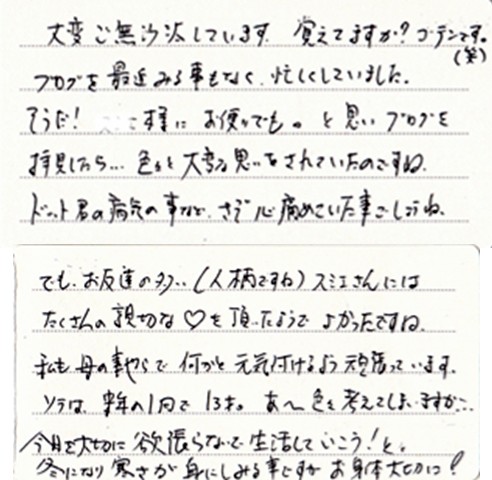 大変ご無沙汰しています 覚えてますか?ゴーテンです。(笑)
ブログを最近みる事もなく、忙しくしていました。
そうだ! 様に お便りでも。と思いブログを
拝見したら… 色々と大変な思いをされていたのですね。
ドット君の病気の事など、さぞ心痛めていた事でしょうね。
でも、お友達の多い (人柄ですね) スミエさんには
たくさんの親切な♡を頂いたようで よかったですね。
私も 母の事やらで 何かと 元気付けるよう 頑張っています。
ソラは、来年の1月で 13才。あ〜色々考えてしまいますが…
今日を大切に 欲張らないで 生活していこう!と、
冬になり 寒さが 身にしみる事ですが お身体大切に!